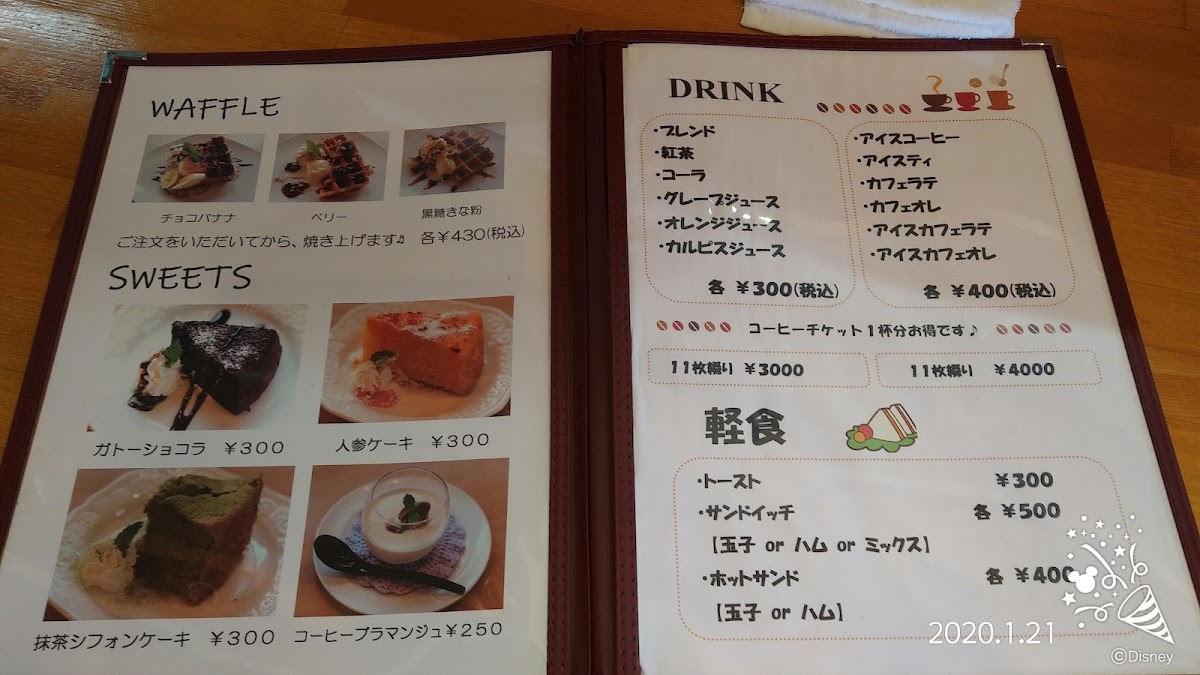 WAFFLE
チョコバナナ
ベリー
黒糖きな粉
ご注文をいただいてから、焼き上げます♬ 各￥430(税込)
SWEETS
ガトーショコラ ￥300
人参ケーキ ￥300
抹茶シフォンケーキ ￥300
コーヒーブラマンジュ￥250
DRINK
・ブレンド
・紅茶
・コーラ
・グレープジュース
・オレンジジュース
・カルピスジュース
各 ￥300(税込)
・アイスコーヒー
・アイスティ
・カフェラテ
・カフェオレ
・アイスカフェラテ
・アイスカフェオレ
各 ￥400(税込)
コーヒーチケット１杯分お得です♪
11枚綴り ￥3000
11枚綴り ￥4000
軽食
・トースト ￥300
・サンドイッチ 各 ￥500
【玉子 or ハム or ミックス】
・ホットサンド 各 ￥400
【玉子 or ハム】
2020.1.21
©Disney